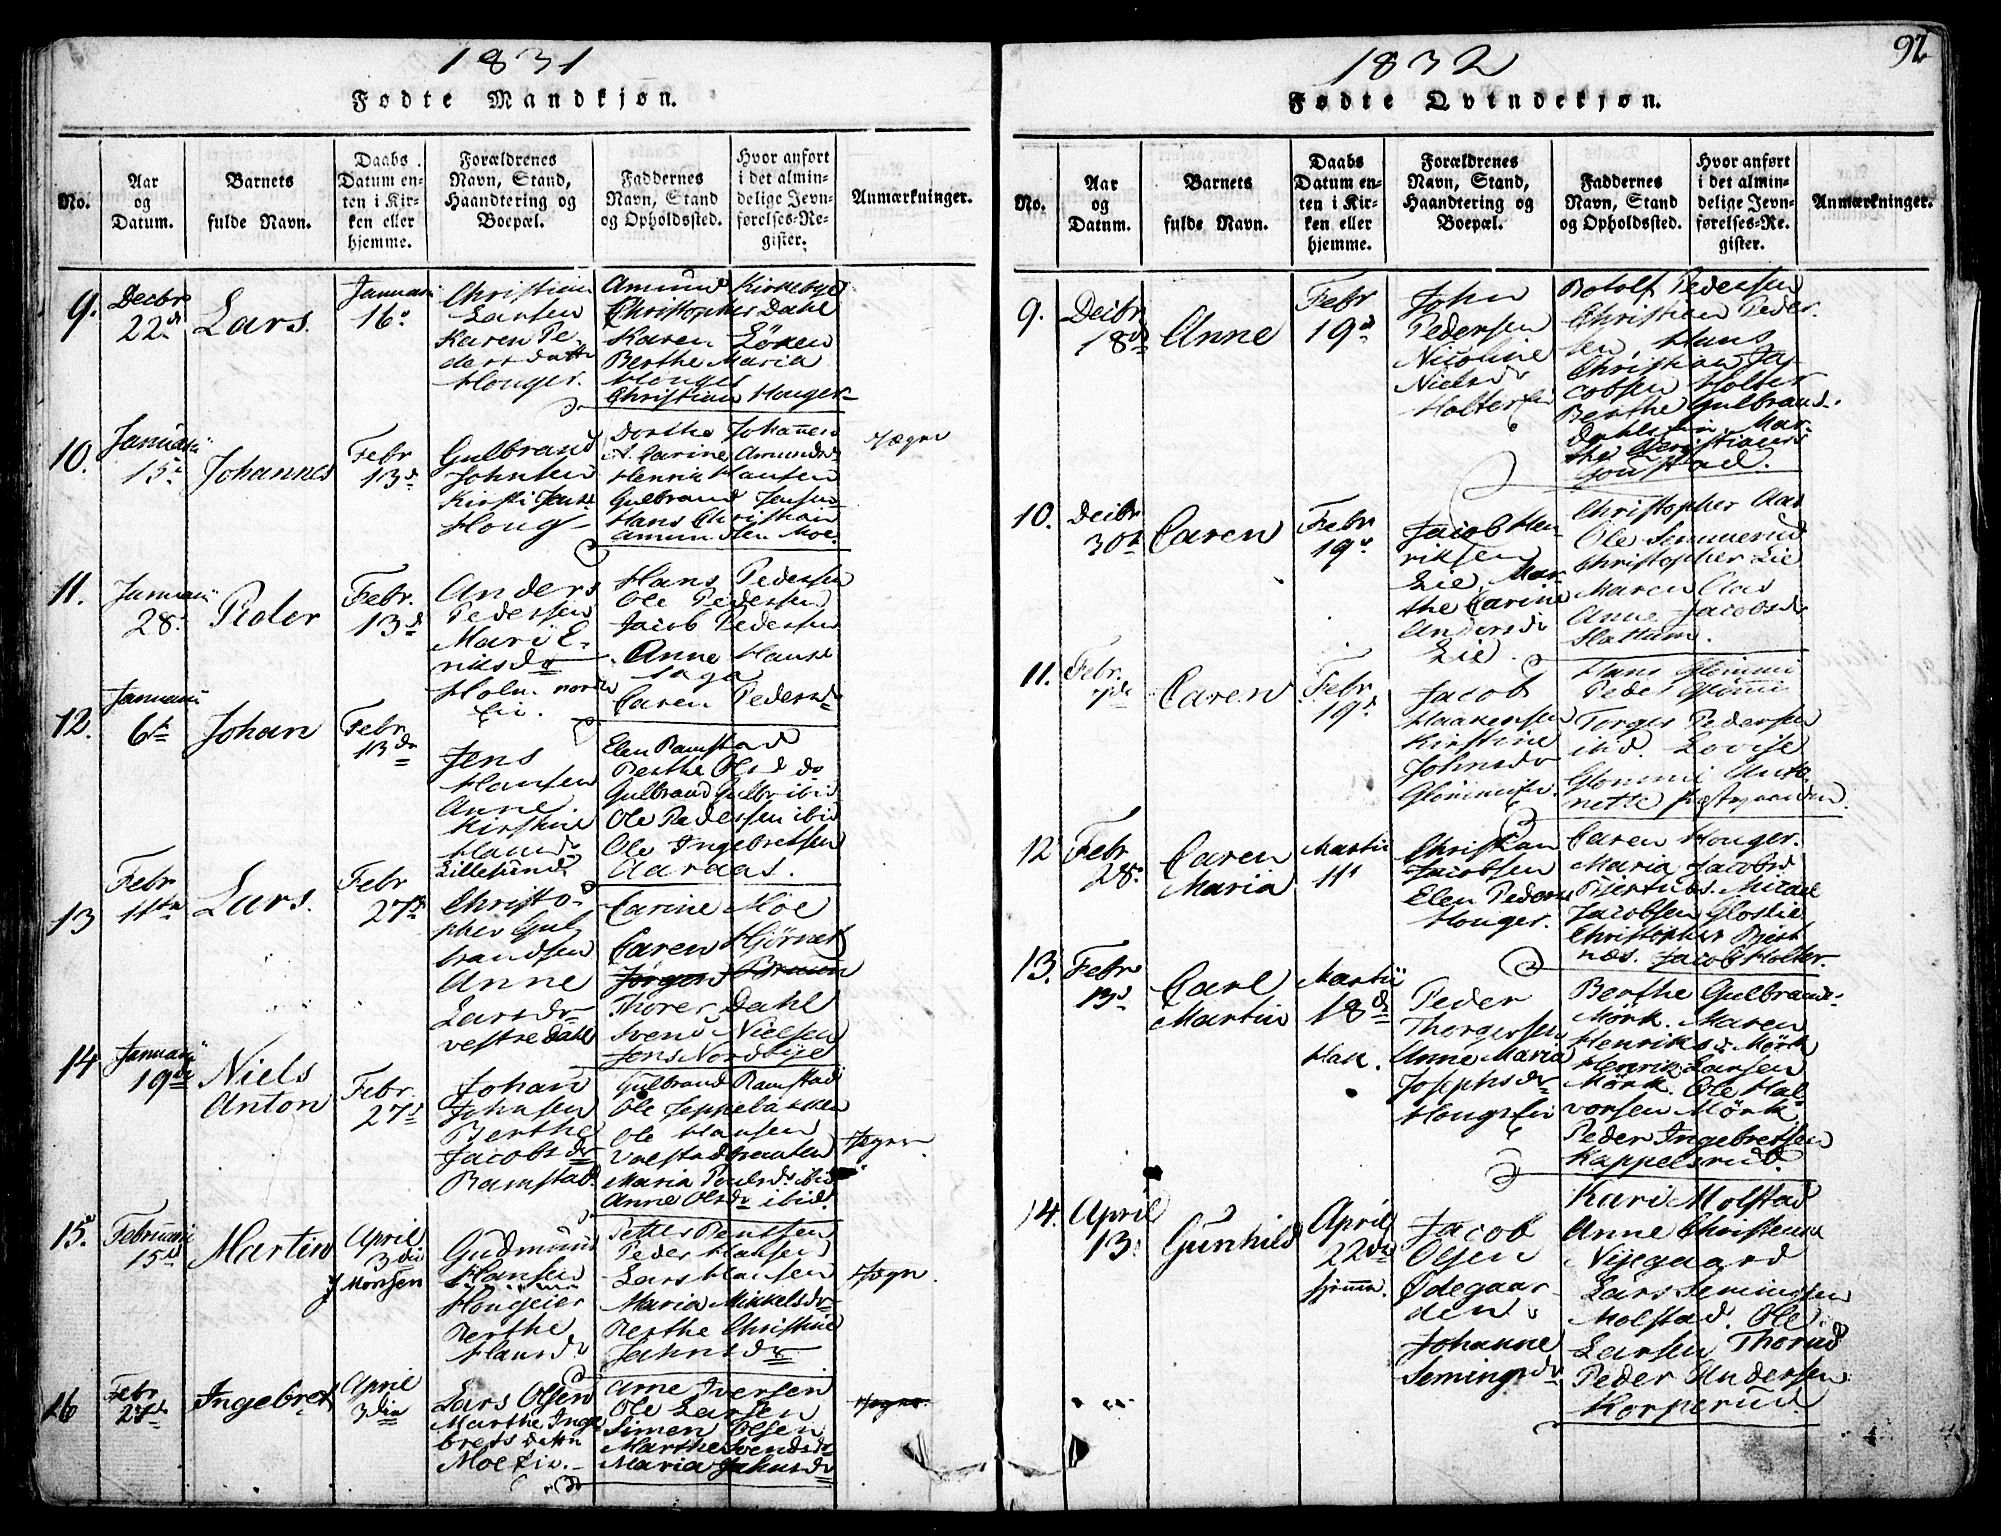 1831
Fødte Mandkjøn.
No.
Aar
og
Datum.
Barnets
fulde Navn.
Daabs
Datum en-
ten i Kir-
ken eller
hjemme.
Forældrenes
Navn, Stand,
Haandtering og
Boepæl.
Faddernes
Navn, Stand
og Opholdssted.
Hvor anført
i det almin-
delige Jevn-
førelses-Re-
gister.
Anmærkninger.
9.
Decbr
22d
Lars.
Januari
16
Christian
Larsen
Karen Pe-
dersdatt
Houger.
Amund Kirkebye
Christopher Dahl
Karen Löken
Berthe Maria
Houger
Christian Houger
10.
Januarii
15
Johannes
Febr
13d
Gulbrand
Johnsen
Kirsti Jens
Houg
Dorthe Johannes
Carine Amundsd
Henrik Hansen
Gulbrand Jensen
Hans Christian
Amundsen Moe.
11.
Januarii
28
Peder
Febr.
13d
Anders
Pedersen
Mari E-
riksdr
Holm nordre
Eie.
Hans Pedersen
Ole Pedersen
Jacob Pedersen
Anne Hansd
Caren Pedersd
12.
Januarii
6te
Johan
Febr
13de
Jens
Hansen
Anne
Kirstine
Hansd
Lillesund
Elen Ramstad
Berthe Olsd do
Gulbrand Gulbr ibid
Ole Pedersen ibid
Ole Ingebretsen
Aaraas.
13
Febr
11te
Lars.
Febr
27d
Christo-
pher Gul
brandsen
Anne
Larsdr
vestre Dahl
Carine Moe
Caren Hjörnet
Jörgen Bruun
Thorer Dahl
Svend Nielsen
Jens Nordbye
14
Januarii
19de
Niels
Anton
Febr.
27d
Johan
Johnsen
Berthe
Jacobsdr
Ramstad.
Gulbrand Ramstad
Ole Seppelbakken
Ole Hansen
Volstadbraaten
Maria Poulsd ibid
Anne Olsdr ibid.
15.
Februarii
15d
Martin
April
3die
J Monsen
Gudmund
Hansen
Hougeier
Berthe
Hansdr
Petter Bentsen
Peder Hansen
Lars Hansen
Maria Mikkelsdr
Berthe Christine
Jahnsdr
16
Febr
27d
Ingebret
April
3die
Lars Olsen
Marthe Inge
bretsdattr
Moe Eie.
Arne Iversen
Ole Larsen
Simen Olsen
Marthe Svendsdr
Maria Jahnsdr
1832
92
Fødte Qvindekjøn.
No.
Aar
og
Datum.
Barnets
fulde Navn.
Daabs
Datum en-
ten i Kir-
ken eller
hjemme.
Forældrenes
Navn, Stand,
Haandtering og
Boepæl.
Faddernes
Navn, Stand
og Opholdssted.
Hvor anført
i det almin-
delige Jevn-
førelses-Re-
gister.
Anmærkninger.
9.
Decibr
18de
Anne
Febr
19d
John
Pedersen
Nicoline
Nielsdr
Holter
Botolf Pedersen
Christian Peder-
sen Hans
Christian Ja-
cobsen Holter
Berthe Gulbrand-
Mar-
the Christians
10.
Decibr
30te
Caren
Febr
19
Jacob Hen
riksen
Lie, Mar-
the Carine
Andersdr
Lie
Christopher Aas
Ole Semmerud
Christopher Lie
Maren Aas
Anne Jacobsdr
Slattum.
11.
Febr.
7de
Caren
Febr
19d
Jacob
Haakensen
Kirstine
Johnsdr
Glömmi
Hans Glömmi
Peder Glömmi
Torger Pedersen
ibid. Lovise
Glommi Anto
nette
12
Febr
28
Caren
Maria
Martii
11
Christian
Jacobsen
Elen Peders
Houger.
Caren Houger.
Maria Jacobsd
Micael
Jacobsen Gloslie
Christopher Bjert
næs. Jacob Holter.
13.
Febr
13d
Carl
Martin
Martii
18de
Peder
Thorgersen
Anne Maria
Josephsdr
Hougslie
Berthe Gulbrands
Mörk. Maren
Henriksd Mörk
Henrik Larsen
Mörk. Ole Hal-
vorsen Mörk
Peder Ingebretsen
Kappelsrud
14.
April
13
Gunhild
April
22de
hjemme.
Jacob
Olsen
Ödegaar-
den
Johanne
Semingsdr
Kari Molstad
Anne Christensd
Nyegaard
Lars Semingsen
Molstad. Ole
Larsen Thorud
Peder Andersen
Korperud.